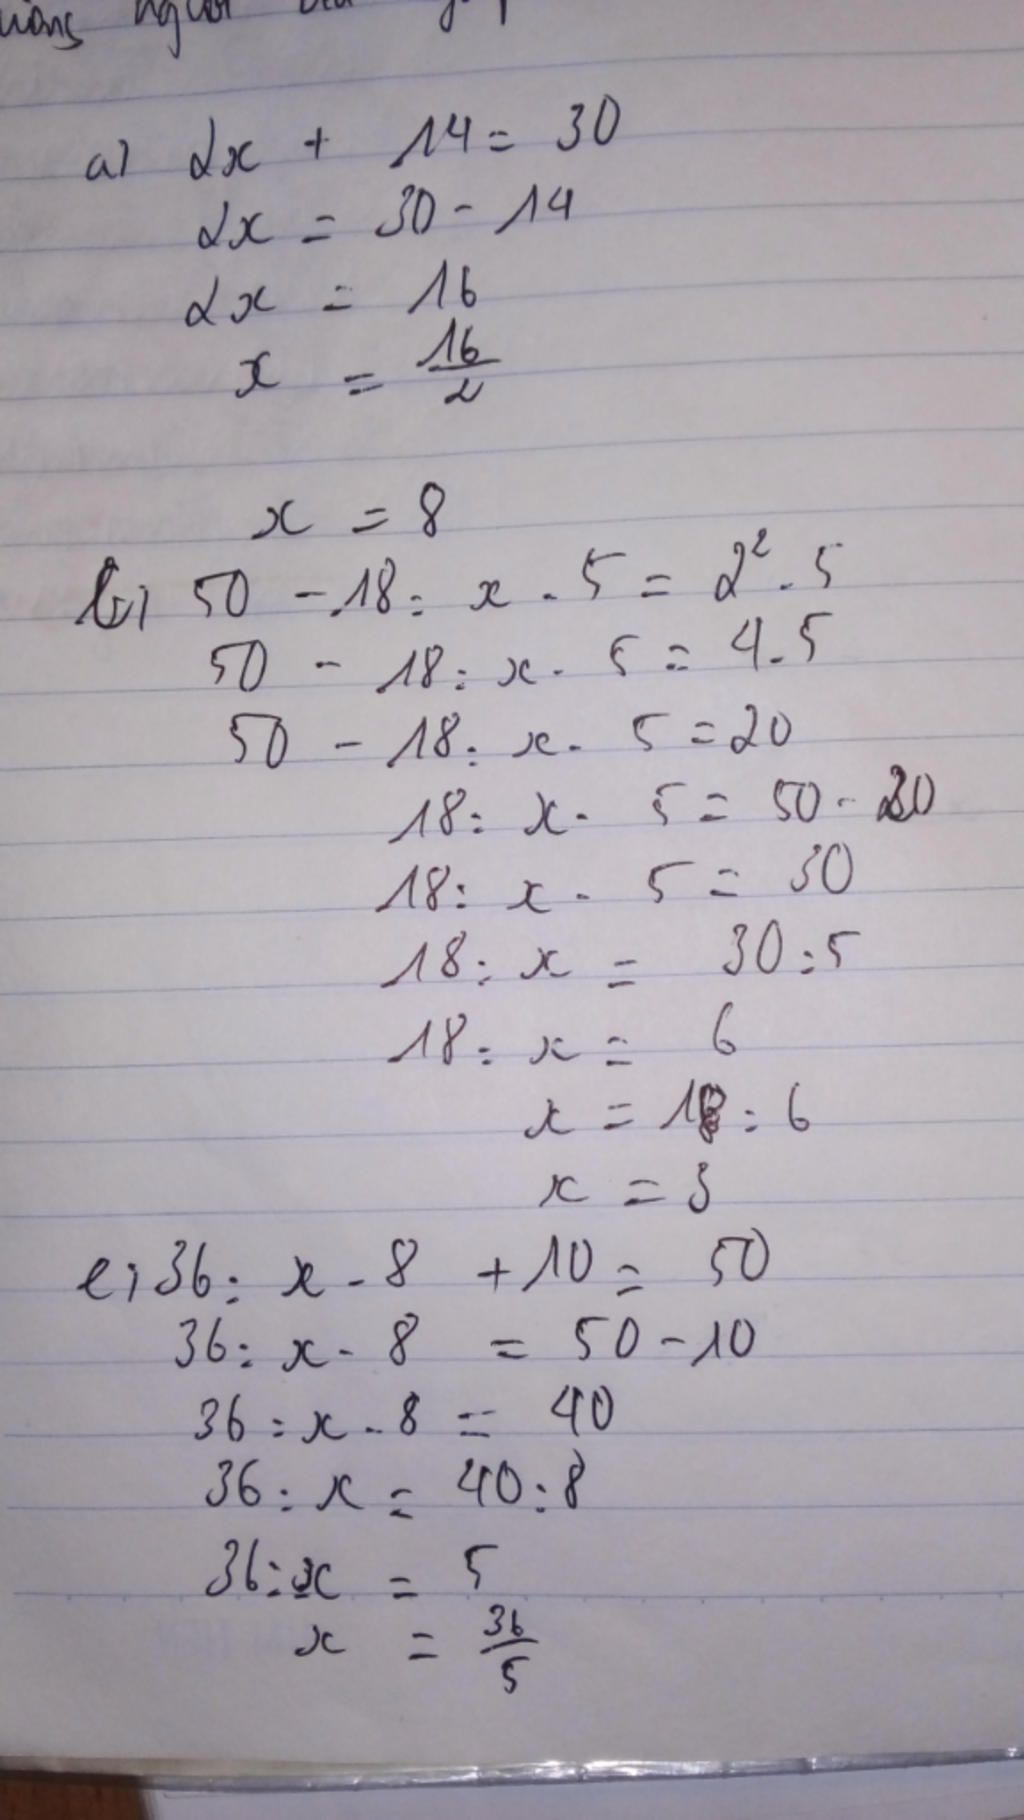 người
a) 2x + 14 = 30
2x = 30 - 14
2x = 16
x = 16/2
x = 8
b) 50 - 18 : x . 5 = 2² . 5
50 - 18 : x . 5 = 4 . 5
50 - 18 : x . 5 = 20
18 : x . 5 = 50 - 20
18 : x . 5 = 30
18 : x = 30 : 5
18 : x = 6
x = 18 : 6
x = 3
c) 36 : x . 8 + 10 = 50
36 : x . 8 = 50 - 10
36 : x . 8 = 40
36 : x = 40 : 8
36 : x = 5
x = 36/5